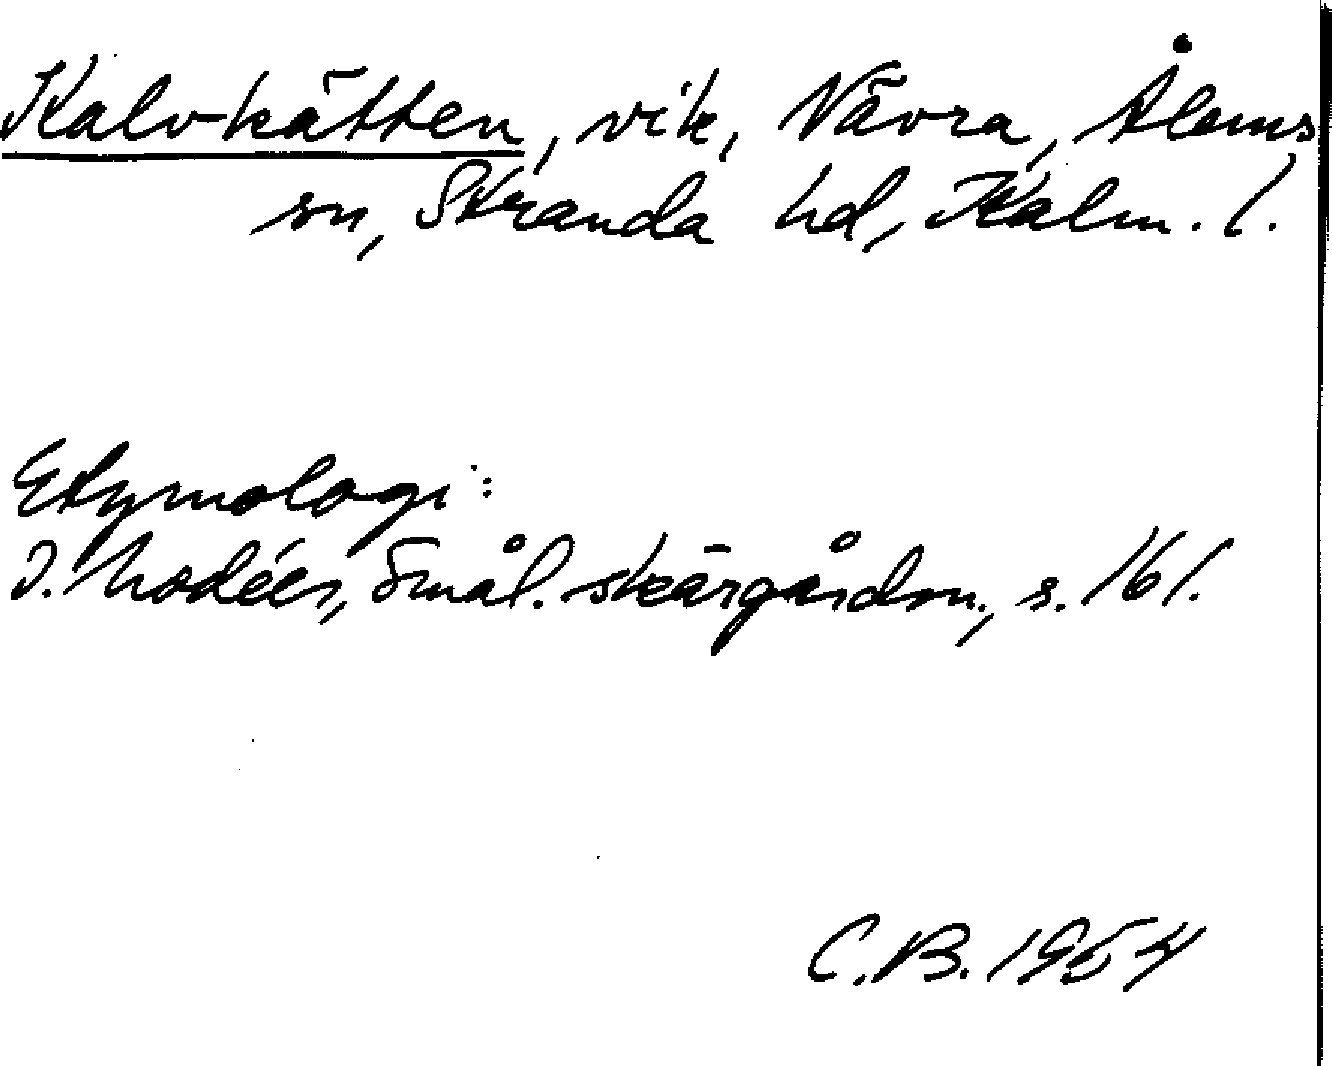 Kalvkätten, vik, Nävra, Ålems
sn, Stranda hd, Kalm. l.
Etymologi:
I. Modéer, Smål. skärgårdsn., s. 161.
C.B. 1954